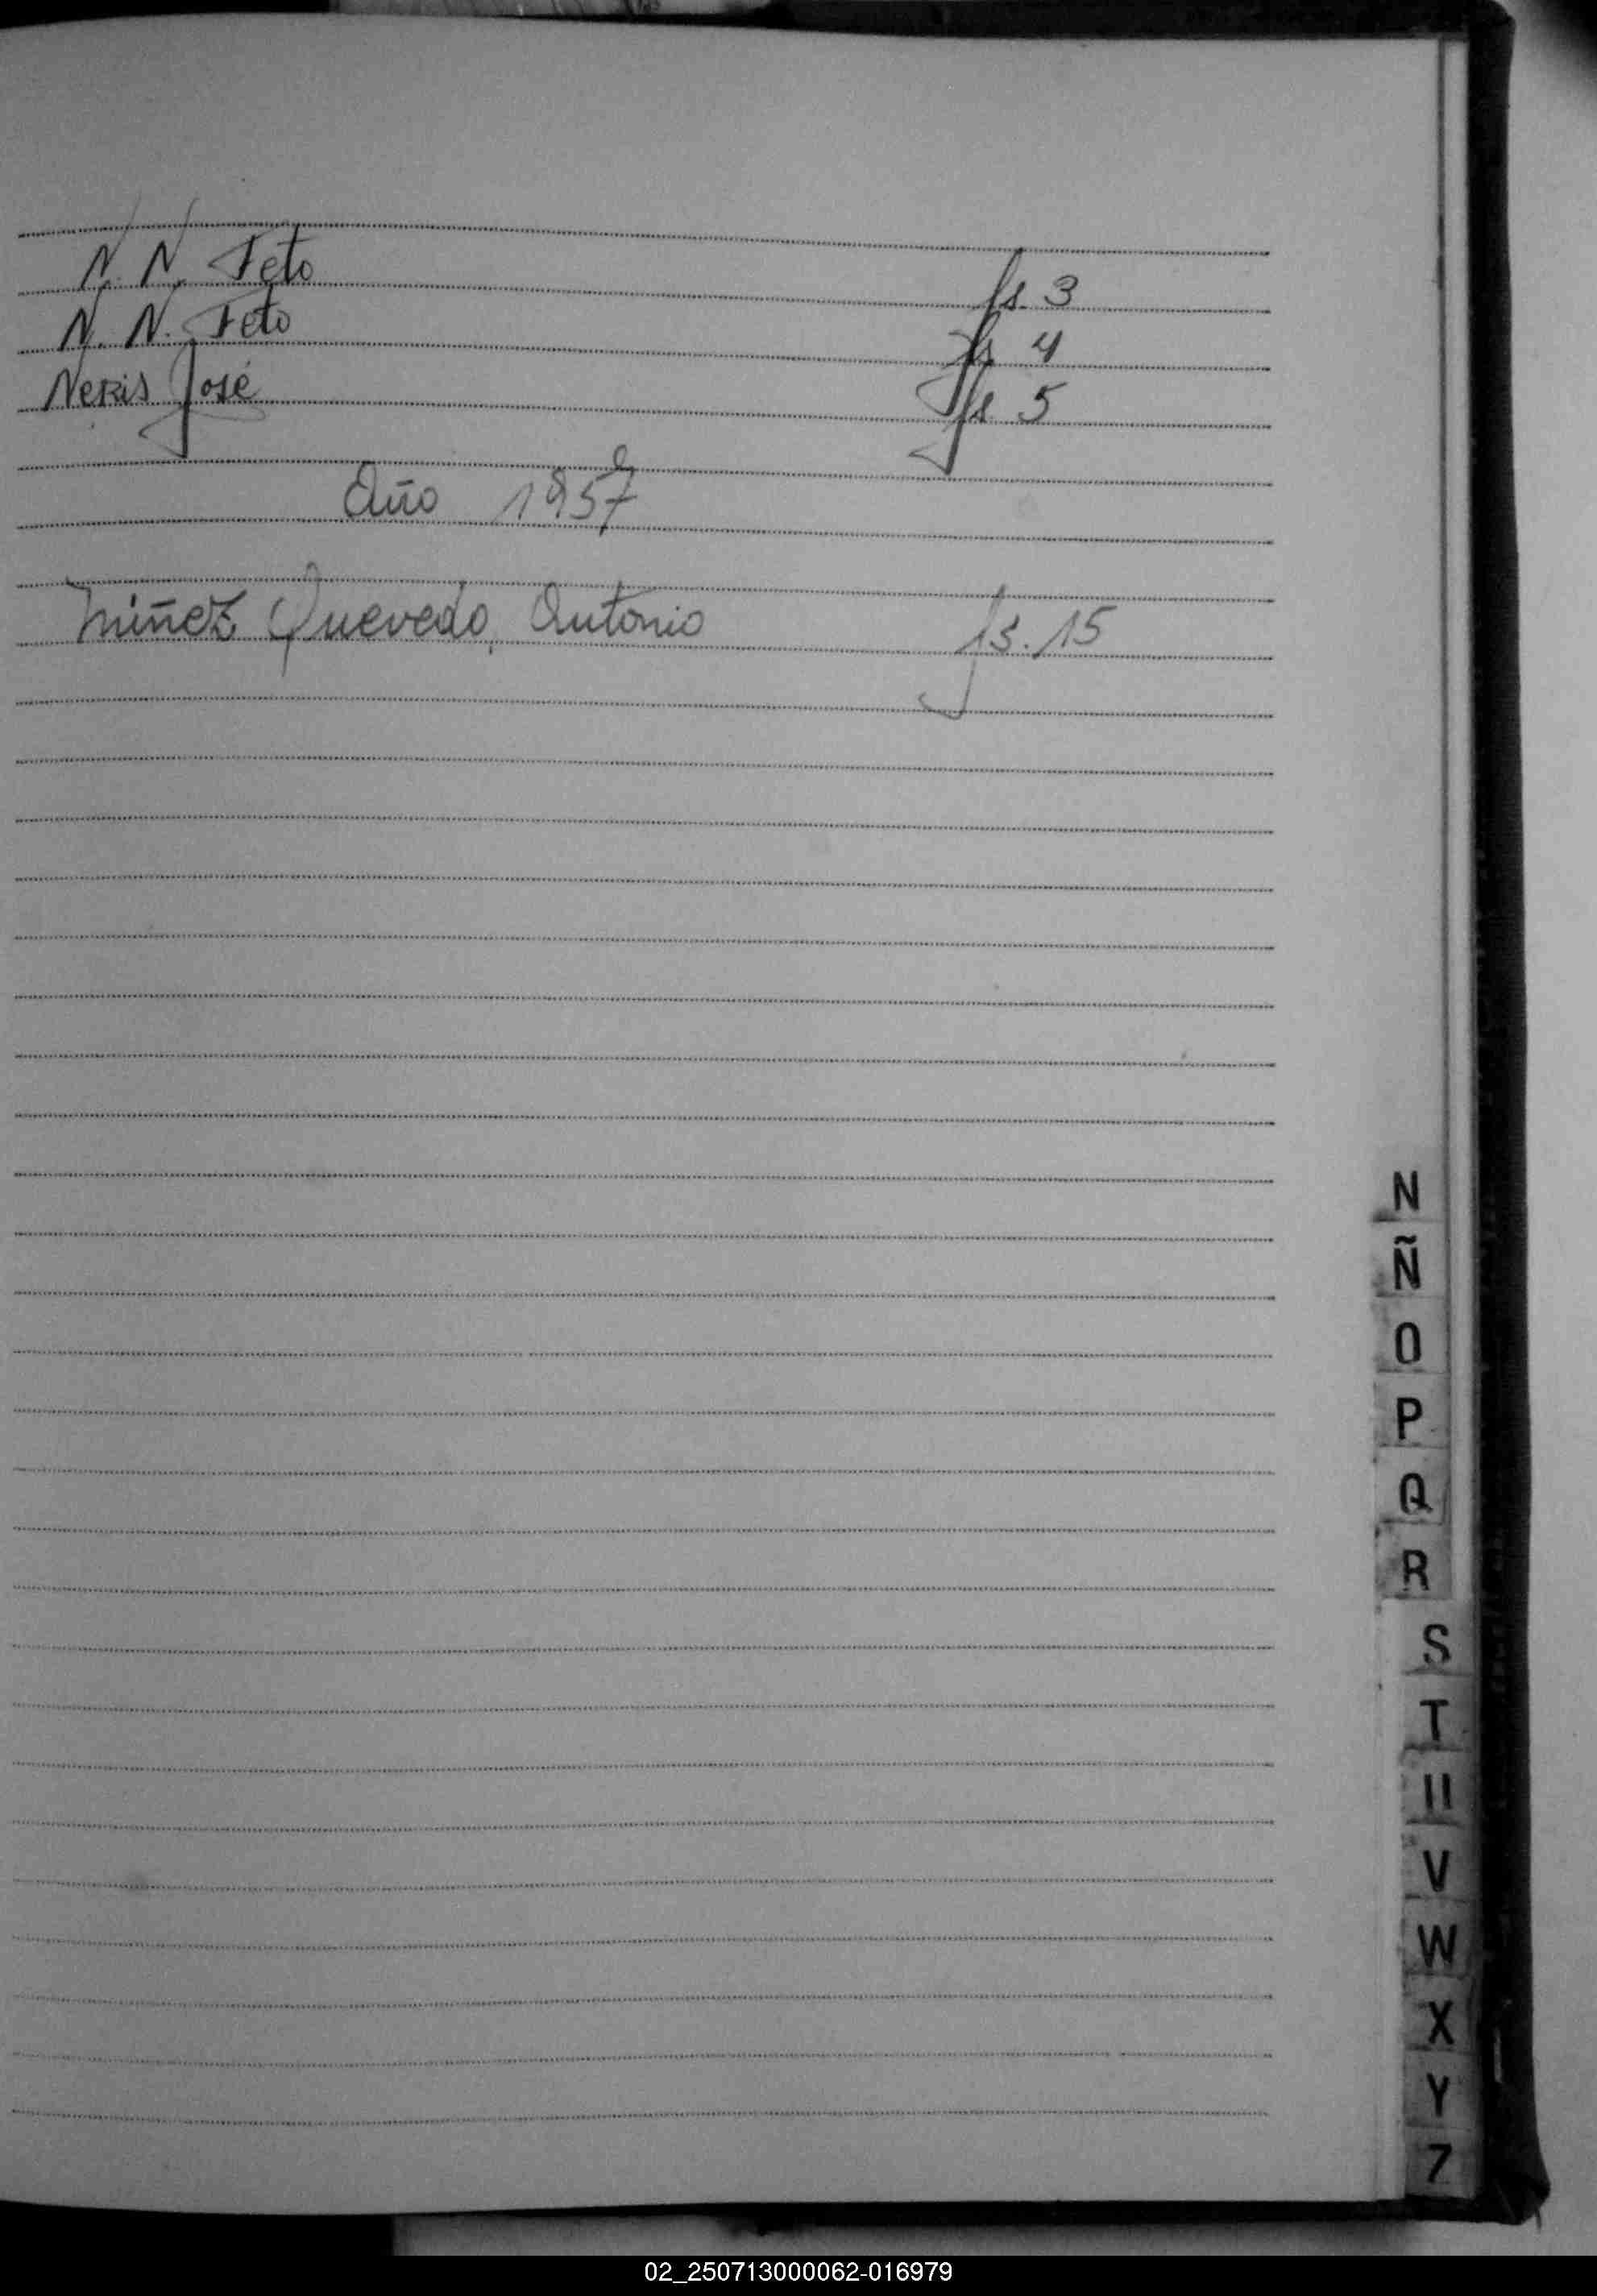 N. N. Feto fs. 3
N. N. Feto fs 4
Neris José fs. 5
Año 1957
Niñez Quevedo, Antonio fs. 15
N
Ñ
O
P
Q
R
S
T
U
V
W
X
Y
Z
02_250713000062-016979